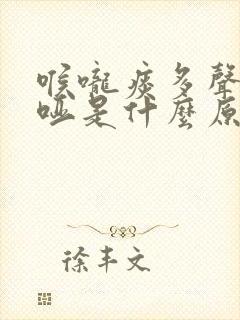 喉嚨痰多聲
啞是什麼原
徐丰文